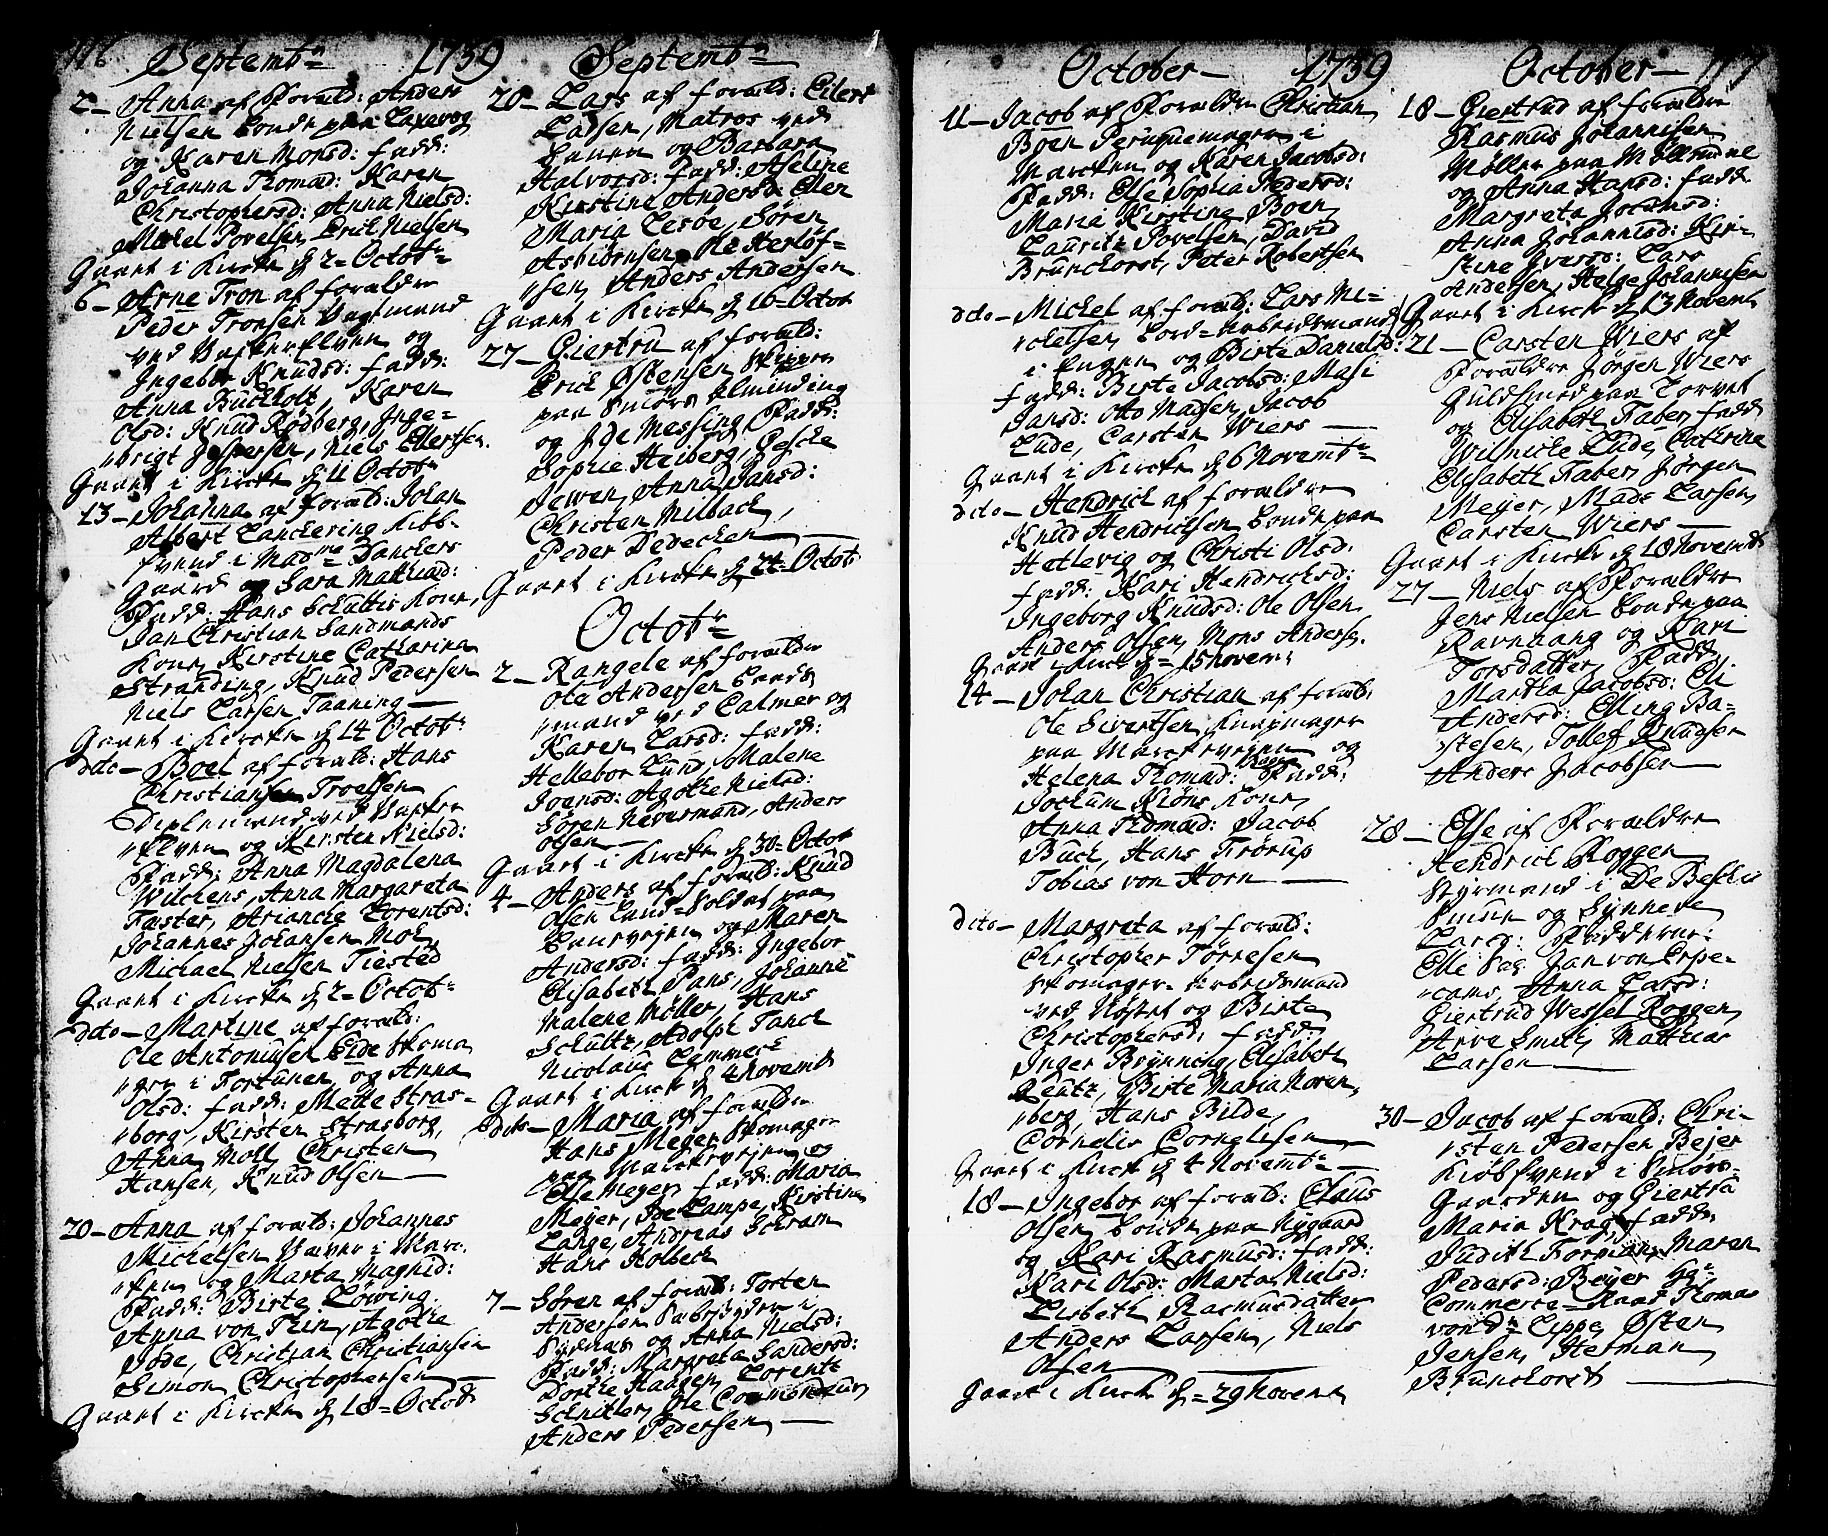 116 Septembr 1739 Septembr
2 – Anna af Foræld: Anders
Nielsen bonde paa Laxevog
og Karen Monsd: fadd:
Johanna Thomæd: Karen
Christophersd: Anna Nielsd:
Mickel Povelsen, Erick Nielsen
Gaaet i Kircke d 2 = Octobr
6 – Arne Tron af forældre
Peder Tronsen
ved og
Ingebor Knudsd: fadd:
Anna Buckholt, Karen
Olsd: Knud Rødberg, Inge=
brigt Jespersen, Niels Ellertsen.
Gaaet i Kircke d 11 Octobr
13 – Johanna af foræld: Johan
Albert Lanckering Kiøb-
svend i Madme Danckers
Gaard og Sara Mathiæd:
Fadd: Hans Schultis Kone,
Jan Christian Sandmands
Kone, Kirstine Catharina
Stranding, Knud Pedersen
Niels Larsen Taaning –
Gaaet i Kircke d 14 Octobr
dito – Boel af foræld: Hans
Christiansen Troelsen
ved
elven og Kirsten Nielsd:
Fadd: Anna Magdalena
Wilchens, Anna Margareta
Faster, Ariancke Lorentsd:
Johannes Johansen Moe,
Michael Nielsen Tiested
Gaaet i Kircke d 2 = Octobr
dito – Martine af foræld:
Ole Antoniusen Eide Skoma
ger i Fortunen og Anna
Olsd: fadd: Mette Stras=
borg, Kirsten Strasborg,
Anna Moll Christen
Hansen, Knud Olsen –
20 – Anna af foræld: Johannes
Michelsen Væver i Marc-
ken og Marta Magnid:
Fadd: Birte Løwing,
Anna von Thin, Agothe
Jøde, Christian Christiansen
Simon Christophersen –
Gaaet i Kircke d 18 = Octob
20 – Lars af foræld: Eilert
Larsen, Matros ved
og Barbara
Halvorsd: fadd: Aseline
Kirstine Andersd: Elen
Maria Lesøe, Søren
Asbiørnsen, Ole Herlöf=
sen, Anders Andersen
Gaaet i Kircke d 16 = Octob
27 – Giertru af foræld:
Erick Østensen Skipper
paa Smørs Alminding
og Ide Messing Fadd:
Sophie Heiberg, Gesche
Jewen, Anna Jansd:
Christen Milbach,
Peder Dedecken –
Gaaet i Kircke d 24 = Octob
Octobr
2 – Rangele af forældre
Ole Andersen
mand ved Calmer og
Karen Larsd: fadd:
Hellebor Lund, Malene
Iversd: Agothe Nielsd:
Søren Nevermand, Anders
Olsen –
Gaaet i Kircke d 30 = Octob
4 – Anders af foræld: Knud
Olsen Land=Soldat paa
og Maren
Andersd: fadd: Ingebor
Elisabeth Pans, Johanne
Malene Möller, Hans
Schultz, Adolph Tanck
Nicolaus Lammers
Gaaet i Kirck d 4 Novemb
dito – Maria af forældre
Hans Meger Skomager
paa Marckeveyen og
Else Meger, fadd: Maria
Meyer, Ide Lampe, Kirstine
Lange, Andreas Schram
Hans Holbeck
7 – Søren af foræld: Torten
Andersen i
Sydnes og Anna Nielsd:
Fadd: Margreta Sandersd:
Dorthe Haagen, Lorentz
Schniller, Ole
Anders Pedersen –
October – 1739 October – 117
11 – Jacob af Forældre Christian
Boen Peruquemager i
Marcken og Karen Jacobsd:
Fadd: Else Sophia Pedersd:
Maria Kirstine Boen,
Lauritz Povelsen, David
Brunchorst, Peter Robertsen
dito – Mickel af foræld: Lars Mi=
ckelsen, Bord=Arbeidsmand
i Engen og Birte Danielsd:
fadd: Birte Jacobsd: Masi
Jansd: Otto Madsen, Jacob
Lude, Carsten Wiers –
Gaaet i Kircke d 6 Novembr
dito – Hendrick af forældre
Knud Hendricksen bonde paa
Hetlevig og Christi Olsd:
fadd: Kari Hendricksd:
Ingeborg Knudsd: Ole Olsen,
Anders Olsen, Mons Anders:
Gaaet i Kirck d = 15 Novem:
14 – Johan Christian af foræld:
Ole Sivertsen, Knapmager
paa Marckeveyen og
Helena Thomæd: Fadd:
Jochum Kiøns Kone,
Anna Thomæd: Jacob
Buck, Hans Trørup
Tobias von Horn –
dito – Margreta af foræld:
Christopher Tørresen
Skomager=Arbeidsmand
ved Nøstet og Birte
Christophersd: fadd:
Inger Brynning, Elisabeth
Reutz, Birte Maria Noren-
berg, Hans Bilde,
Cornelis Cornelisen –
Gaaet i Kirck d 4 Novembr –
18 – Ingebor af foræld: Claus
Olsen bonde paa Nygaard
og Kari Rasmusd: fadd:
Kari Olsd: Marta Nielsd:
Lisbeth Rasmusdatter
Anders Larsen, Niels
Olsen –
Gaaet i Kirck d = 29 Novem
18 – Giertrud af forældre
Rasmus Johannisen
Møller paa Möllendal
og Anna Hansd: fadd:
Margreta Jochumsd:
Anna Johannisd: Kir=
stine Iversd: Lars
Andersen, Helge Johannisen
Gaaet i Kirck d 13 Novemb
21 – Carsten Wiers af
Forældre Jørgen Wiers
Guldsmed paa Torvet
og Elisabeth Faber, fadd
Wilmicke Lude, Cathrine
Elisabeth Faber, Jørgen
Meyer, Mads Larsen,
Carsten Wiers –
Gaaet i Kircke d 18 Novemb
27 – Niels af Forældre
Jens Nielsen bonde paa
Ravnhang og Kari
Torsdatter, Fadd:
Martha Jacobsd: Eli
Andersd: Elling Ba=
stesen, Tollef Knudsen
Anders Jacobsen –
28 – Else af Forældre
Hendrick Roggen
Styrmand i De
og Synneve
Larsd: Fadderne:
Elle Jan von Erpe=
coms, Anna Larsd:
Giertrud Wessel Roggen,
Arve Smith, Mathias
Larsen –
30 – Jacob af foræld: Chri-
sten Pedersen Bejer
Kiøbsvend i Smørs=
Gaarden og Giertru
Maria Krag, fadd:
Judith Forman, Maren
Pedersd: Beyer Hr
Commerce=Raad Thomas
von der Lippe, Østen
Jensen, Herman
Brunchorst –